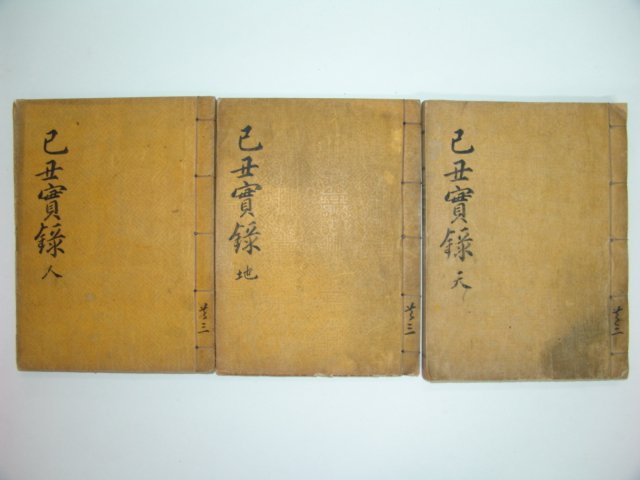 己丑實錄 天
共三
己丑實錄 地
共三
己丑實錄 人
共三